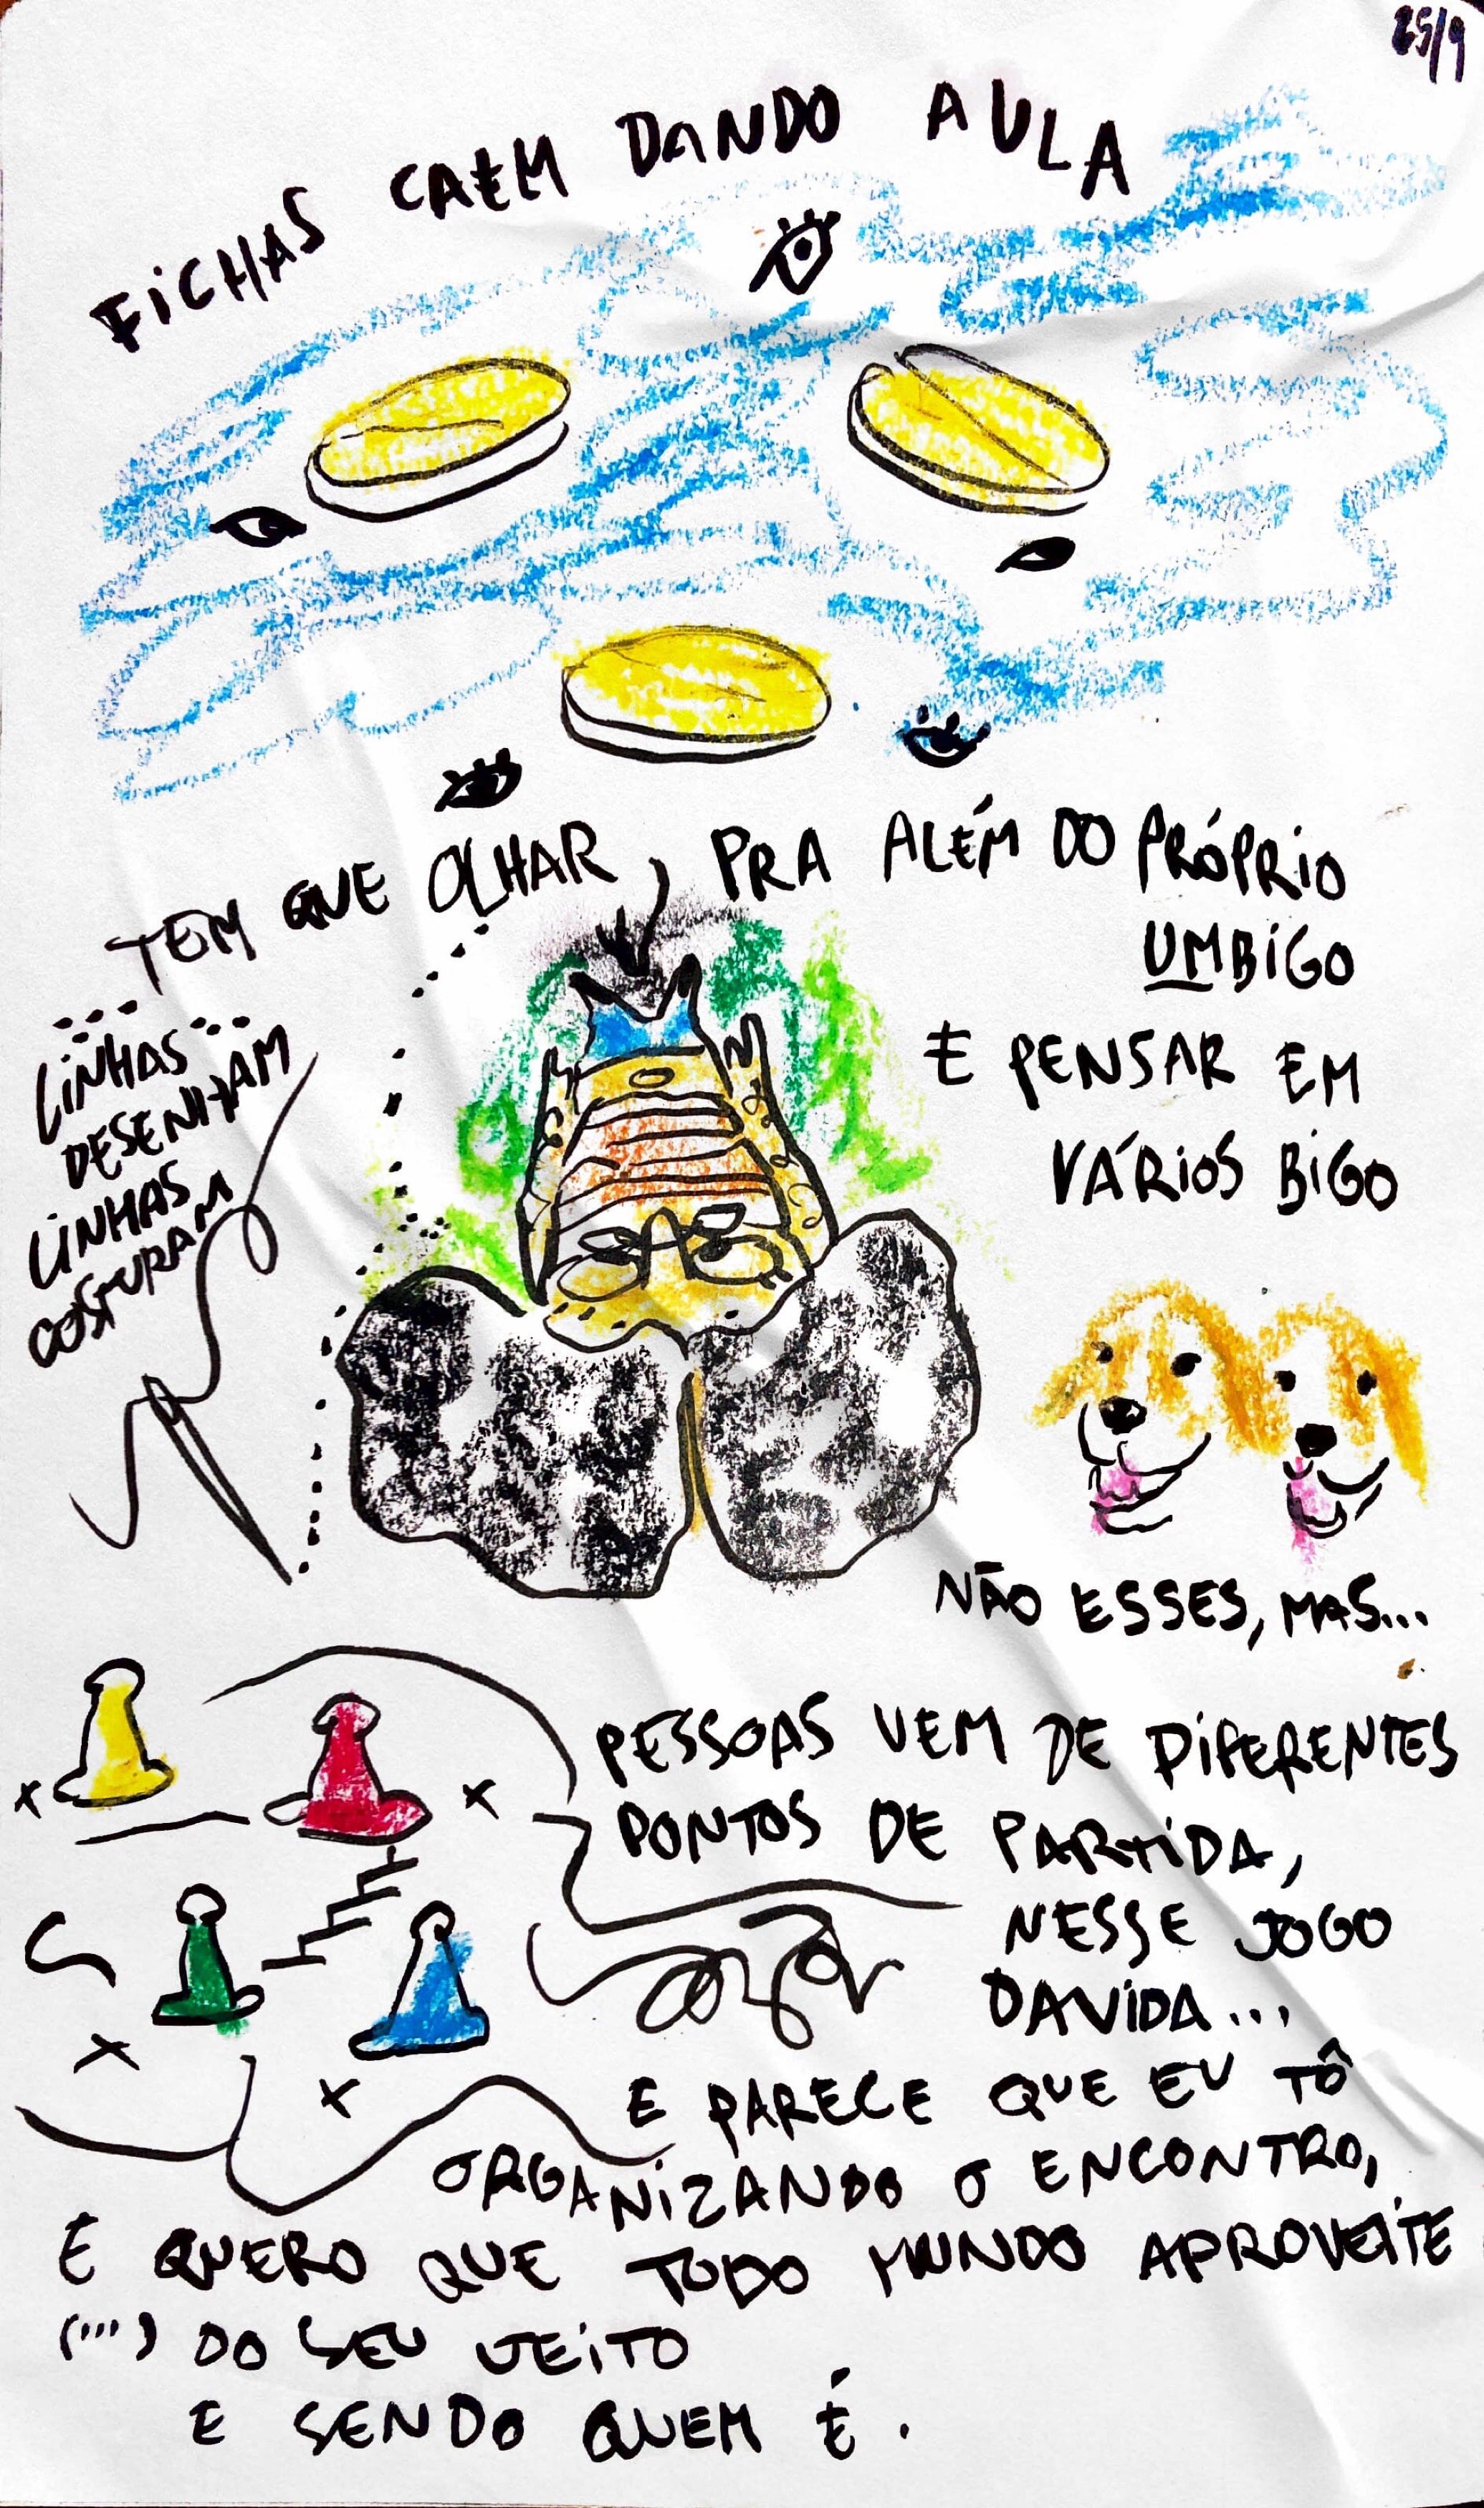 25/9
FICHAS CAEM DANDO AULA
TEM QUE OLHAR, PRA ALÉM DO PRÓPRIO
UMBIGO
E PENSAR EM
VÁRIOS BIGO
LINHAS
DESENHAM
LINHAS
COSTURAM
NÃO ESSES, MAS...
PESSOAS VEM DE DIFERENTES
PONTOS DE PARTIDA,
NESSE JOGO
DAVIDA...
E PARECE QUE EU TÔ
ORGANIZANDO O ENCONTRO,
E QUERO QUE TODO MUNDO APROVEITE
(...) DO SEU JEITO
E SENDO QUEM É.